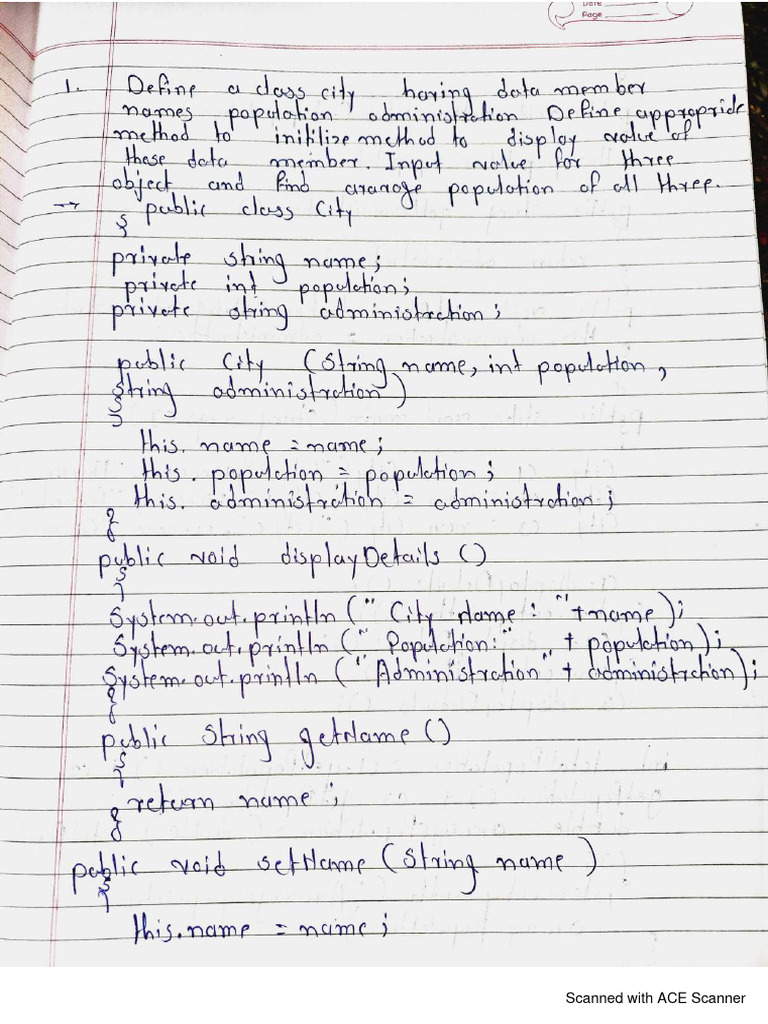 Date
Page
1. Define a class city having data member
names population administration Define appropride
method to initilize method to display value of
these data member. Input value for three
object and find ararage population of all three.
→ public class City
{
private string name;
private int population;
private string administration;
public City (String name, int population,
String administration)
{
this. name = name;
this. population = population;
this. administration = administration;
}
public void displayDetails ()
{
System.out.println (" City Name : "+name);
System.out.println (" Population:" + population);
System.out.println (" Administration" + administration);
}
public String getName ()
{
return name;
}
public void setName (String name )
{
this.name = name;
Scanned with ACE Scanner